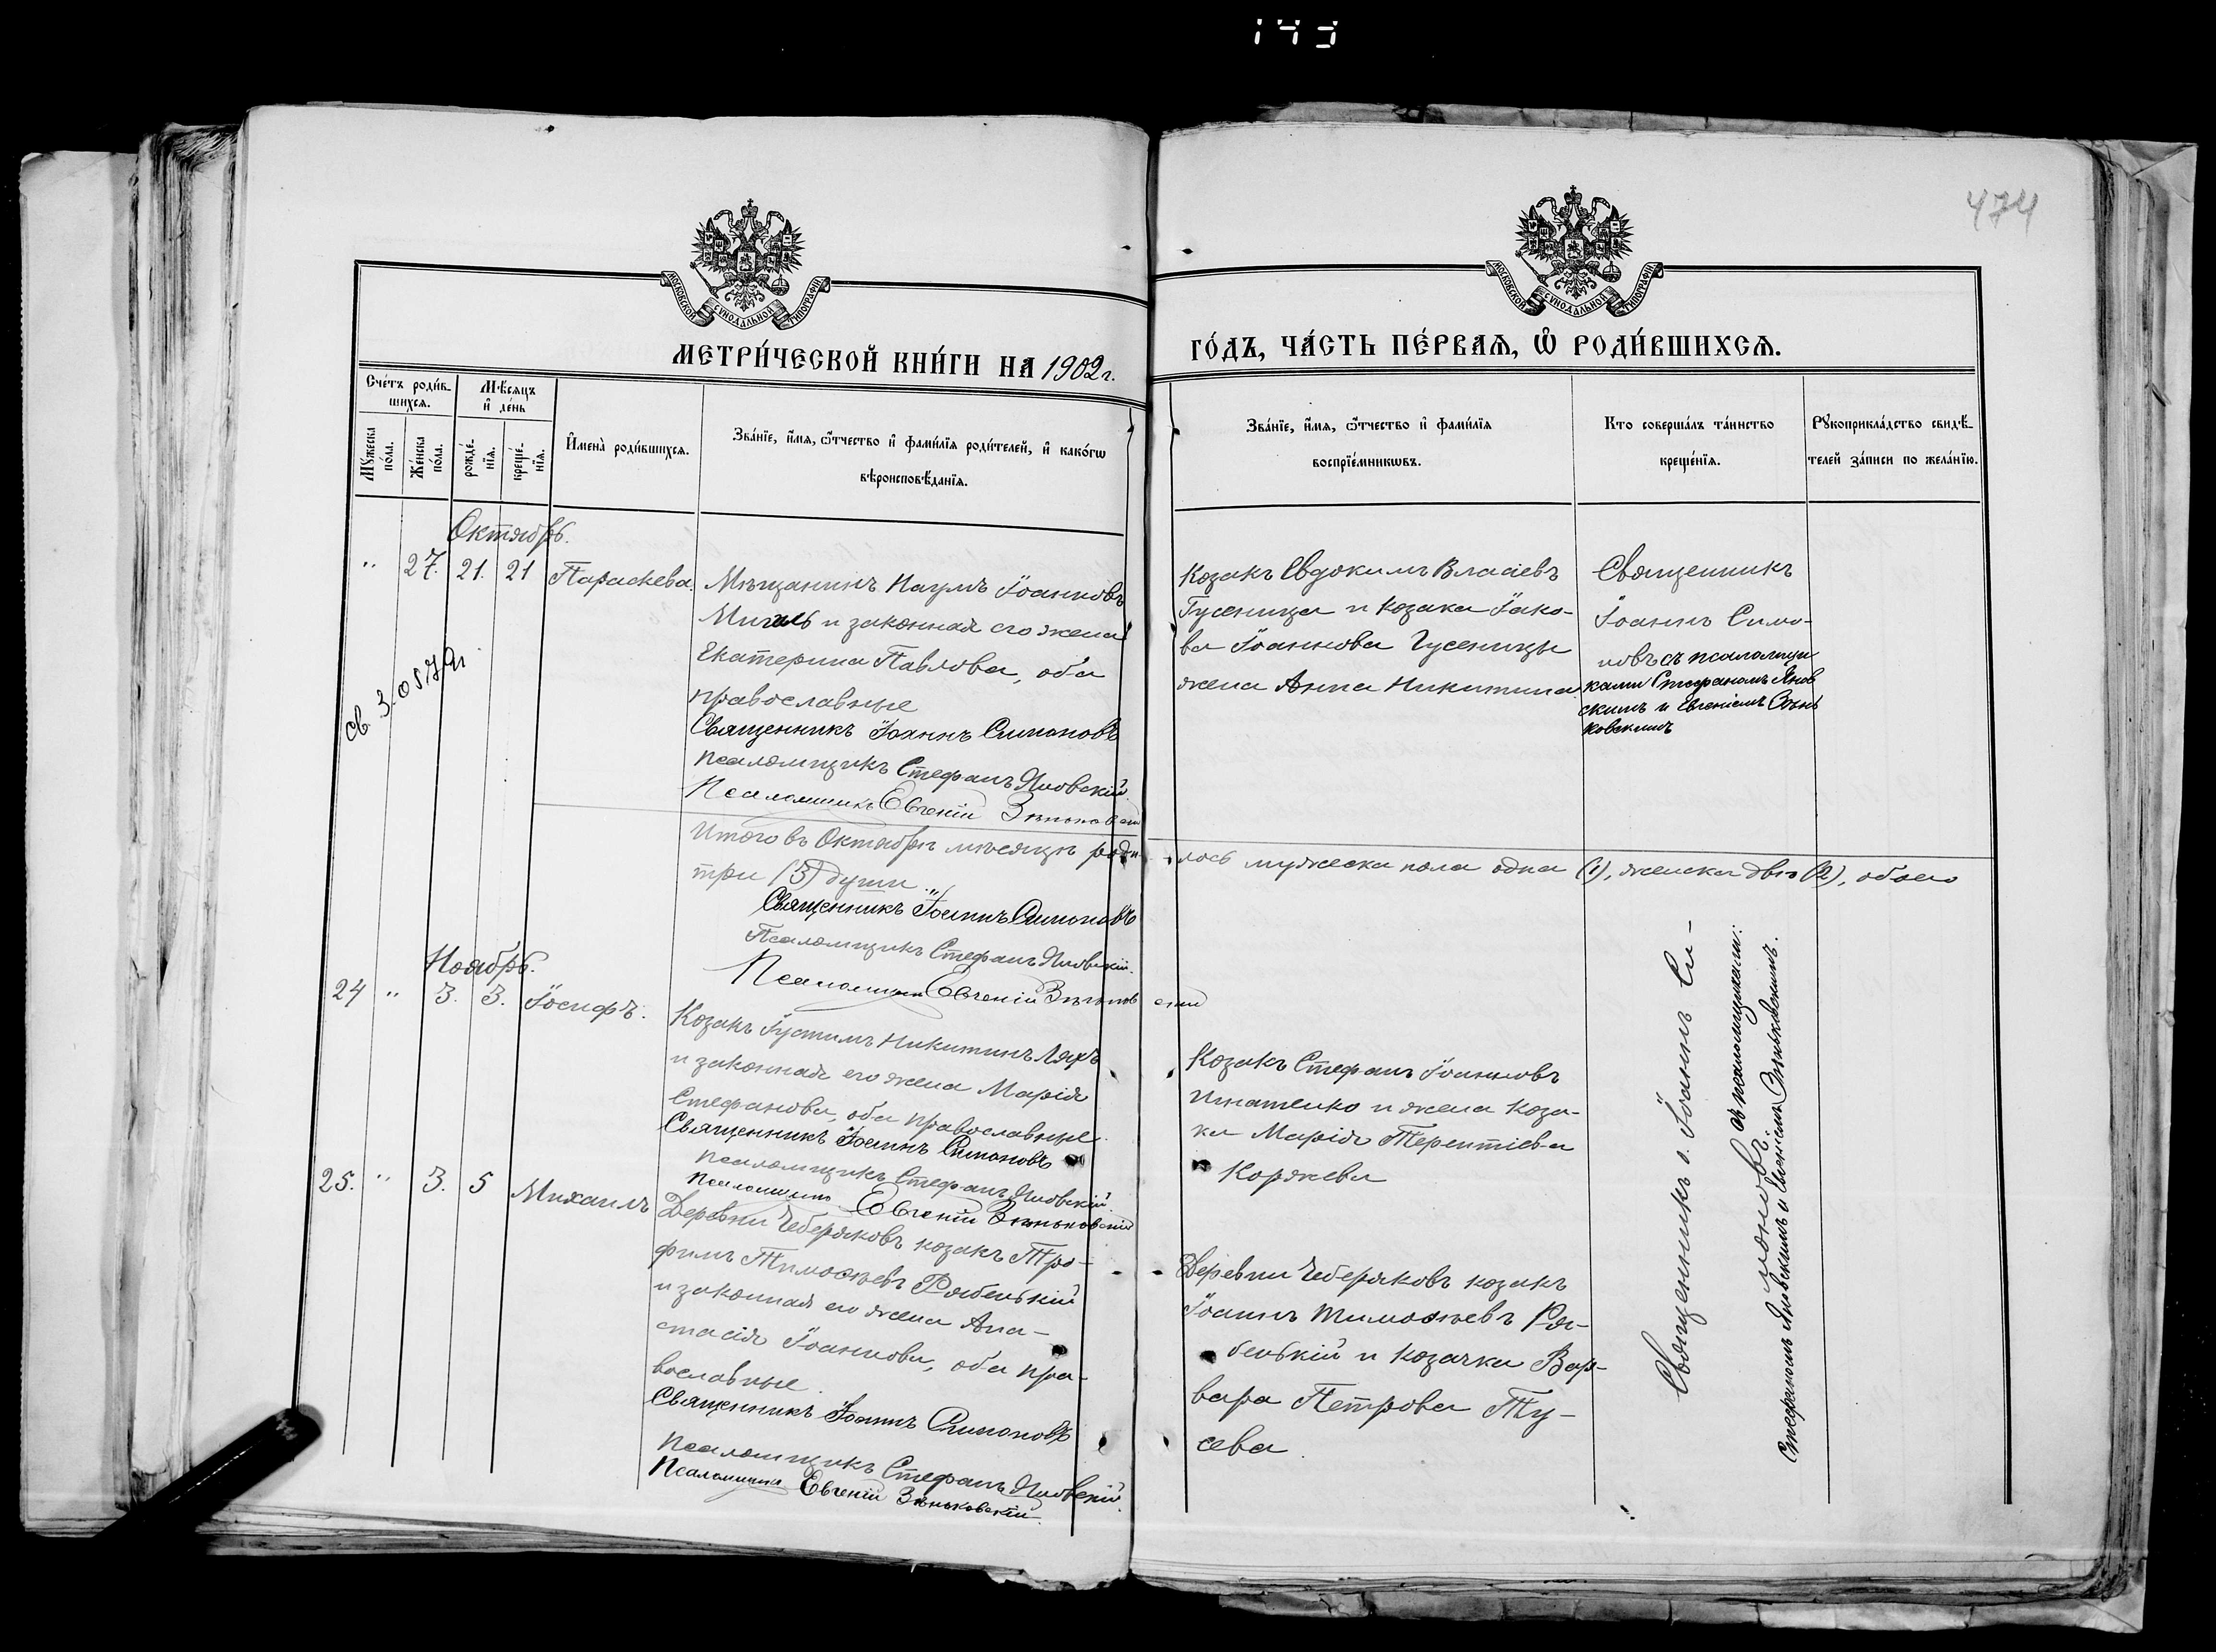 474
МОСКОВСКОЙ СѴНОДАЛЬНОЙ ТИПОГРАФІИ
МОСКОВСКОЙ СѴНОДАЛЬНОЙ ТИПОГРАФІИ
МЕТРИ́ЧЕСКОЙ КНИ́ГИ НА 1902 г.
ГО́ДЪ, ЧА́СТЬ ПЕ́РВАѦ, Ѡ РОДИ́ВШИХСѦ.
Сче́тъ роди́в-
шихсѧ.
Мѣсѧцъ
и҆ де́нь
Мꙋ́жеска
по́ла.
Же́нска
по́ла.
рожде́-
нїѧ.
креще́-
нїѧ.
И҆мена̀ роди́вшихсѧ.
Зва́нїе, и҆́мѧ, ѻ҆́тчество и҆ фами́лїѧ роди́телей, и҆ како́гѡ
вѣроисповѣ́данїѧ.
Зва́нїе, и҆́мѧ, ѻ҆́тчество и҆ фами́лїѧ
воспрїе́мникѡвъ.
Кто соверша́лъ та́инство
креще́нїѧ.
Рꙋкоприкла́дство свидѣ́-
телей за́писи по жела́нїю.
Октябрь.
" 27. 21. 21 Параскева.
Мѣщанинъ Наумъ Іоанновъ
Мигаль и законная его жена
Екатерина Павлова, оба
православные
Священникъ Іоаннъ Симоновъ
Псаломщикъ Стефанъ Яновскій.
Псаломщикъ Евгеній Зѣньковскій
Козакъ Евдокимъ Власіевъ
Гусеница и козака Іако-
ва Іоаннова Гусеницы
жена Анна Никитина
Священникъ
Іоаннъ Симо-
новъ съ псаломщи
ками Стефаномъ Янов
скимъ и Евгеніемъ Зѣнь
ковскимъ
Итого въ Октябрѣ мѣсяцѣ роди-лось мужеска пола одна (1), женска двѣ (2), обоего
три (3) души.
Священникъ Іоаннъ Симоновъ
Псаломщикъ Стефанъ Яновскій.
Псаломщикъ Евгеній Зѣньковскій
Ноябрь.
24 " 3. 3. Іосифъ.
Козакъ Іустимъ Никитинъ Ляхъ
и законная его жена Марія
Стефанова, оба православные.
Священникъ Іоаннъ Симоновъ
Псаломщикъ Стефанъ Яновскій.
Псаломщикъ Евгеній Зѣньковскій
Козакъ Стефанъ Іоанновъ
Игнатенко и жена коза-
ка Марія Терентіева
Коржева
25. " 3. 5 Михаилъ
Деревни Чеберяковъ козакъ Тро-
фимъ Тимоѳѣевъ Рябенькій
и законная его жена Ана-
стасія Іоаннова, оба пра-
вославные.
Священникъ Іоаннъ Симоновъ
Псаломщикъ Стефанъ Яновскій.
Псаломщикъ Евгеній Зѣньковскій.
Деревни Чеберяковъ козакъ
Іоаннъ Тимоѳѣевъ Ря-
бенькій и козачка Вар-
вара Петрова Гу-
сева.
Священникъ о. Іоаннъ Си-
моновъ съ псаломщиками:
Стефаномъ Яновскимъ и Евгеніемъ Зѣньковскимъ.